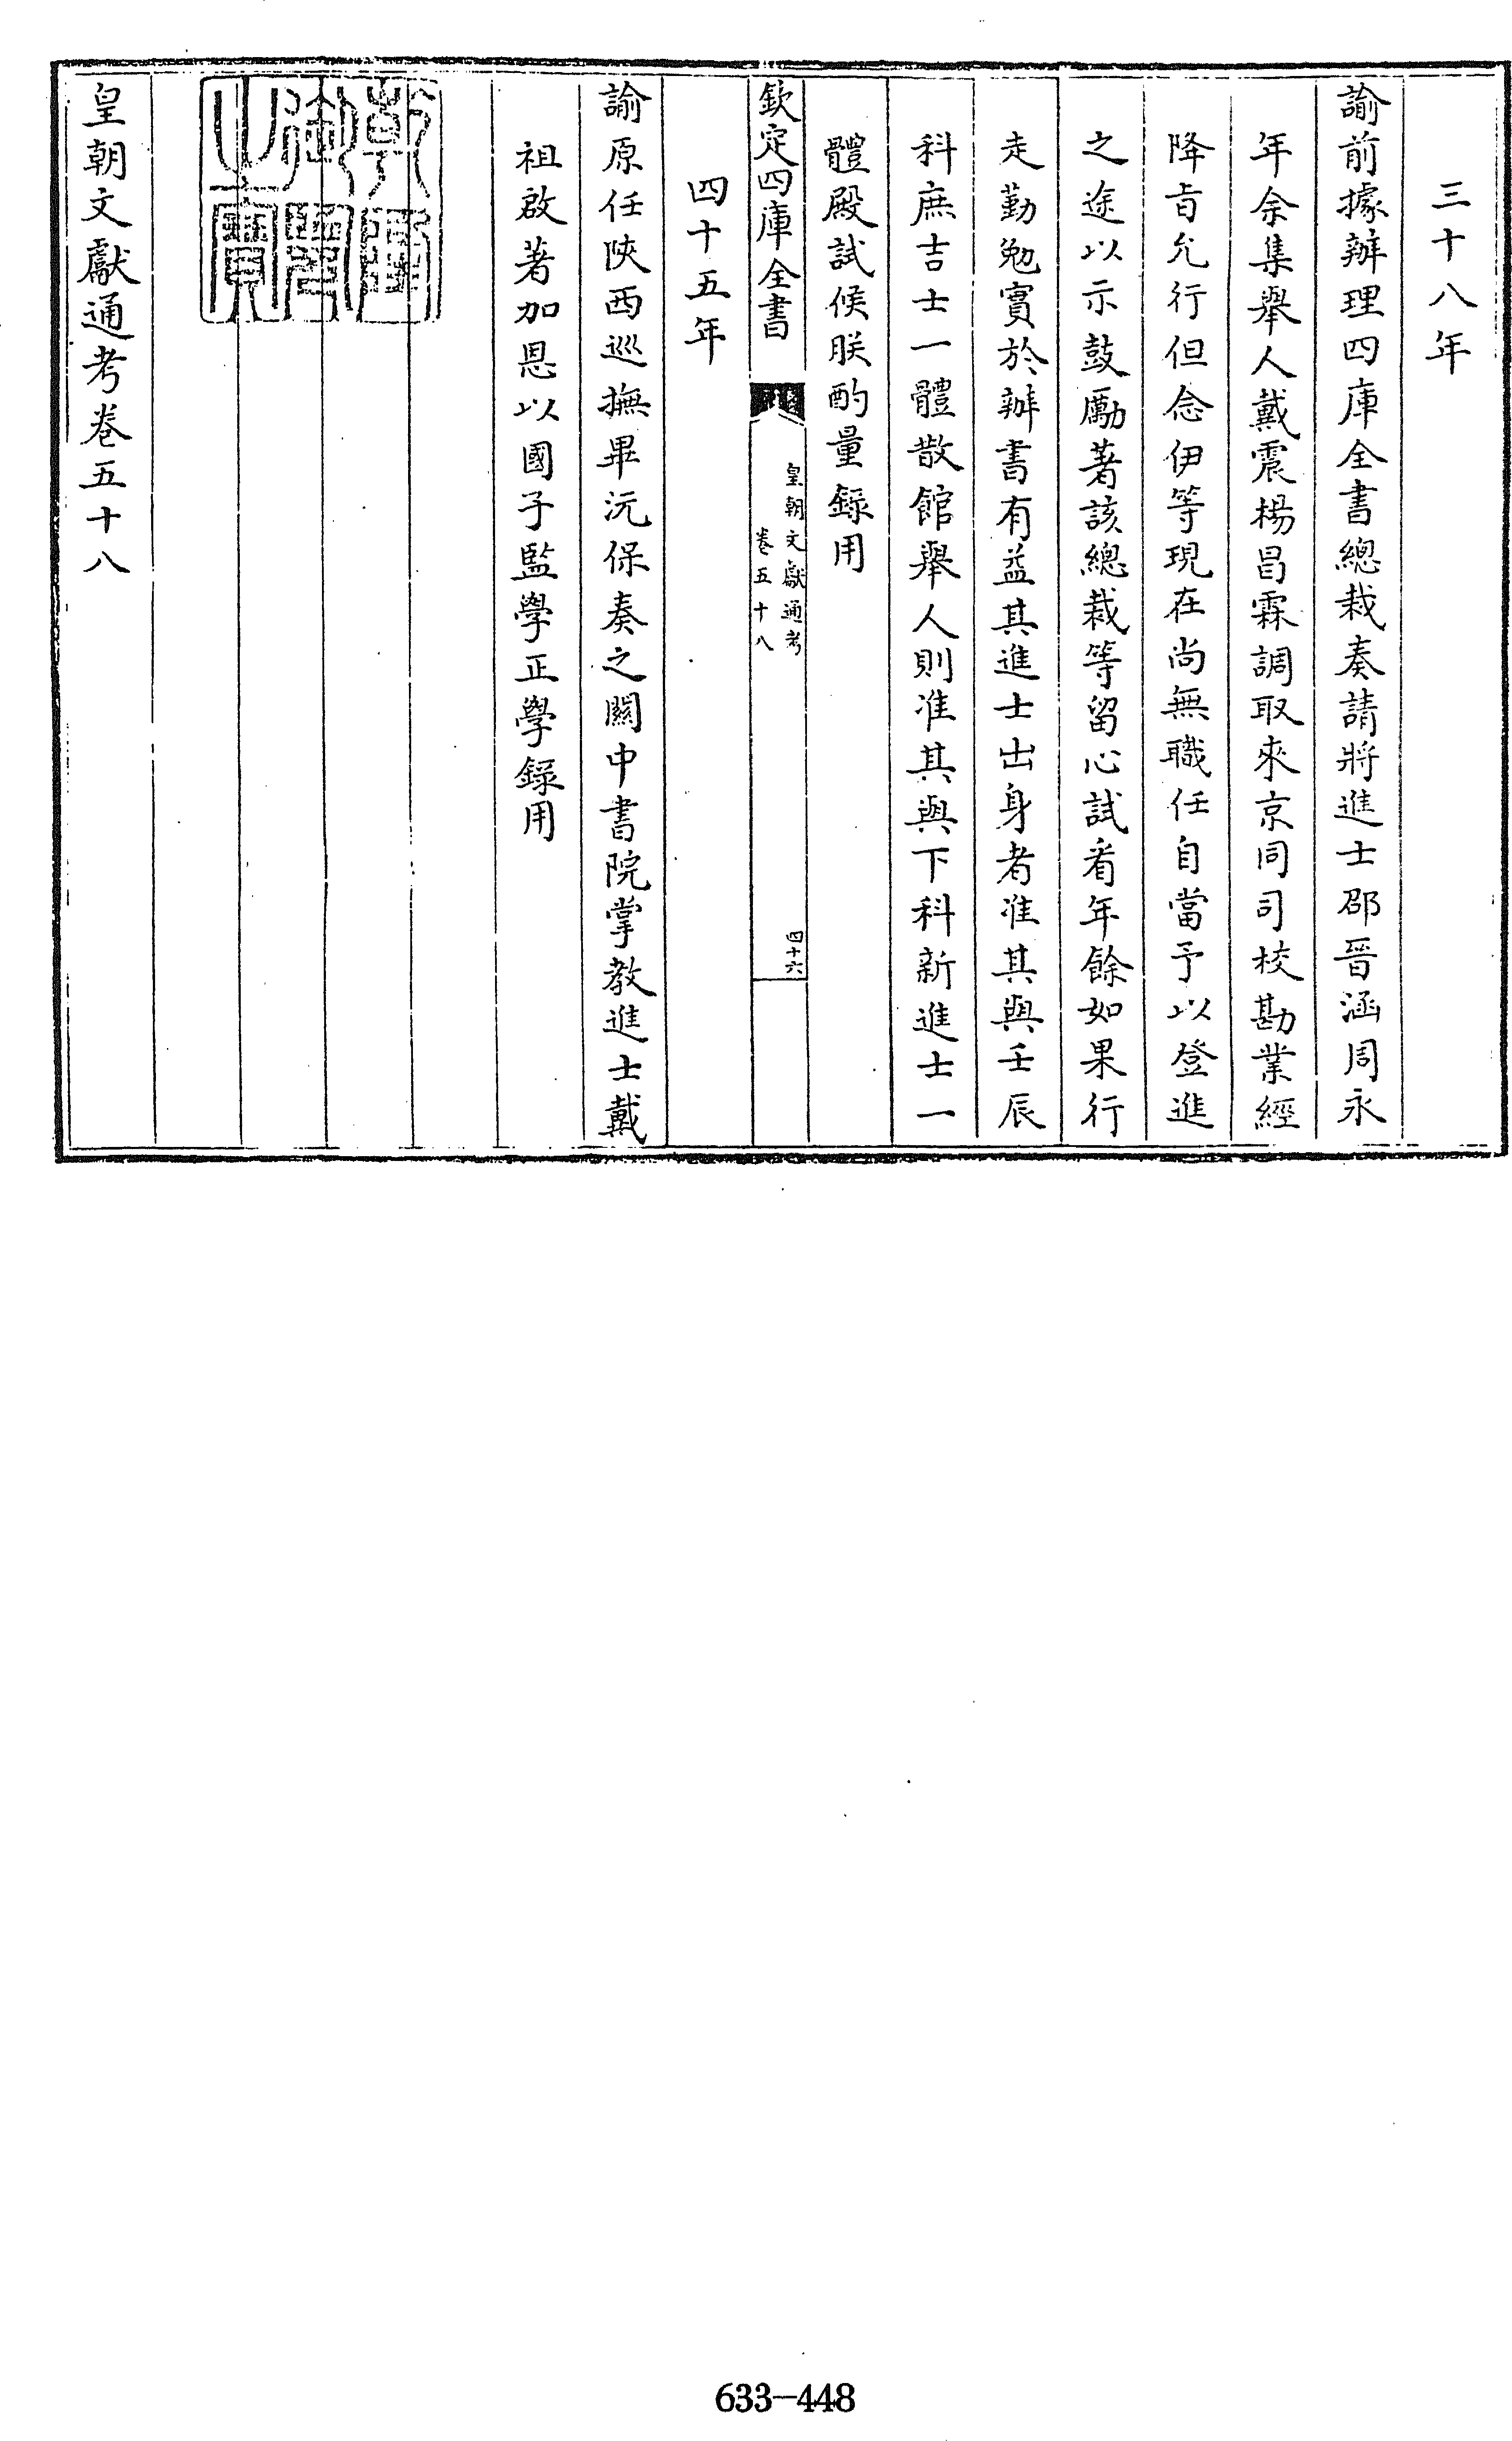 三十八年
諭前據辦理四庫全書總裁奏請將進士邵晉涵周永
年余集舉人戴震楊昌霖調取來京同司校勘業經
降旨允行但念伊等現在尚無職任自當予以登進
之途以示鼓勵著該總裁等留心試看年餘如果行
走勤勉實於辦書有益其進士出身者准其與壬辰
科庶吉士一體散館舉人則准其與下科新進士一
體殿試候朕酌量錄用
欽定四庫全書
皇朝文獻通考
卷五十八
四十六
四十五年
諭原任陝西巡撫畢沅保奏之關中書院掌教進士戴
祖啟著加恩以國子監學正學錄用
乾隆
御覽
之寶
皇朝文獻通考卷五十八
633-448